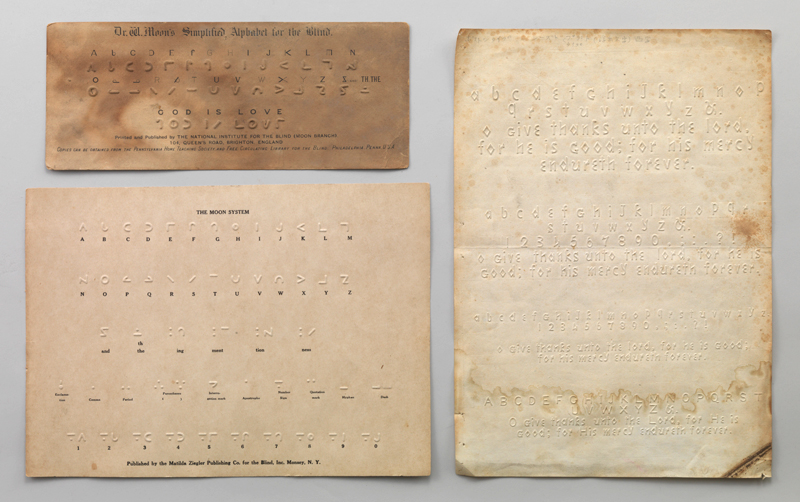 Dr. W. Moon's Simplified Alphabet for the Blind.
A B C D E F G H I J K L M N
O P Q R S T U V W X Y Z &... TH. THE
GOD IS LOVE
Printed and Published by THE NATIONAL INSTITUTE FOR THE BLIND (MOON BRANCH)
104, QUEEN'S ROAD, BRIGHTON, ENGLAND
Copies can be obtained from the Pennsylvania Home Teaching Society and Free Circulating Library for the Blind, Philadelphia, Penna. U.S.A.
THE MOON SYSTEM
A B C D E F G H I J K L M
N O P Q R S T U V W X Y Z
th
and the ing ment tion ness
Comma Period Parentheses Apostrophe Number Quotation Hyphen Dash
sign mark
1 2 3 4 5 6 7 8 9 0
Published by the Matilda Ziegler Publishing Co. for the Blind, Inc. Monsey, N. Y.
a b c d e f g h i j k l m n o p
q r s t u v w x y z &.
O give thanks unto the lord,
for he is good: for his mercy
endureth forever.
a b c d e f g h i j k l m n o p q r
s t u v w x y z &.
1 2 3 4 5 6 7 8 9 0 . , ; : ? !
O give thanks unto the lord, for he is
good: for his mercy endureth forever.
a b c d e f g h i j k l m n o p q r s t u v w x y z
1 2 3 4 5 6 7 8 9 0
O give thanks unto the lord, for he is good:
for his mercy endureth forever.
A B C D E F G H I J K L M N O P Q R S T
U V W X Y Z &.
O give thanks unto the Lord, for he is
good: for his mercy endureth forever.